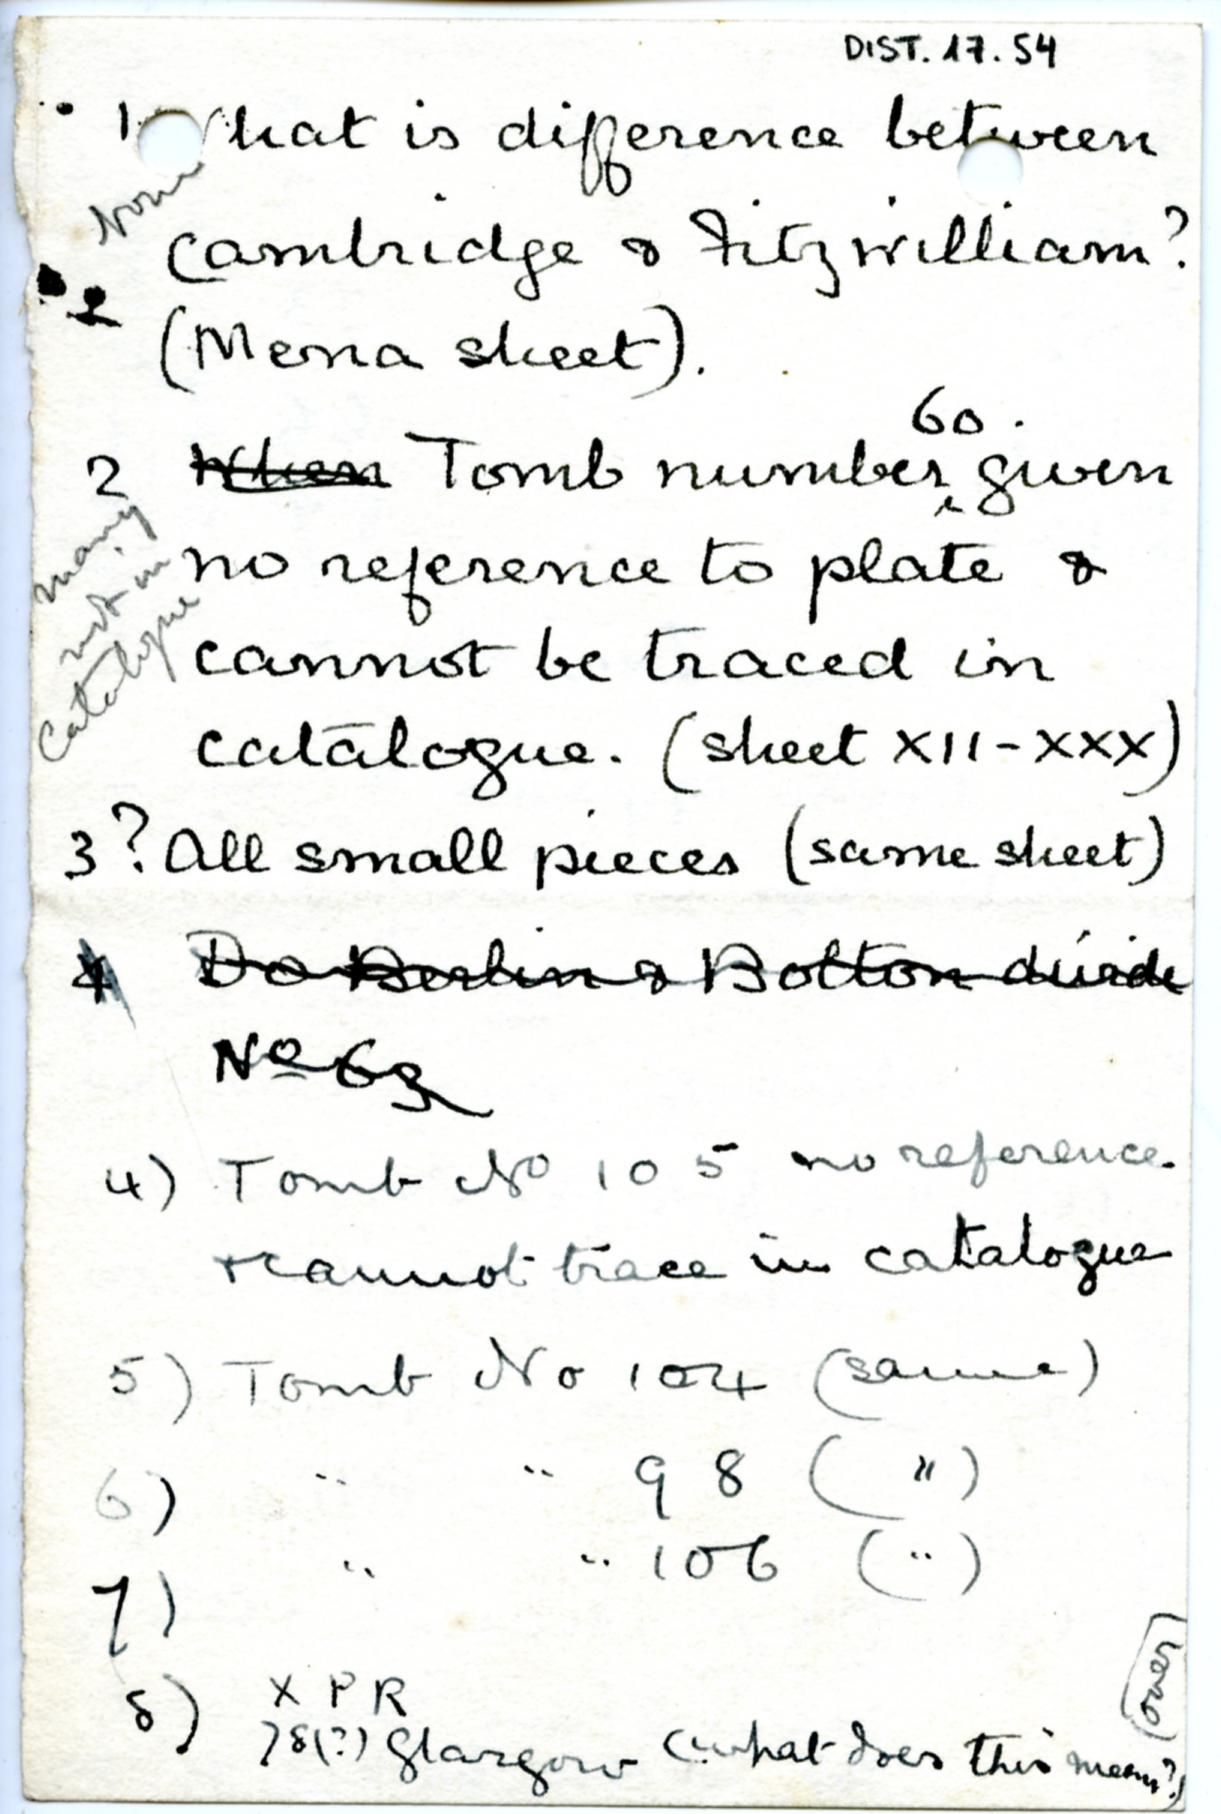 DIST. 17. 54
1 What is difference between
None
Cambridge & Fitzwilliam?
2
(Mena sheet).
60.
2 When Tomb number given
many
not in
catalogue
no reference to plate &
cannot be traced in
catalogue. (sheet XII-XXX)
3 ? All small pieces (same sheet)
4 Do Berlin & Bolton divide
No 63
4) Tomb No 105 no reference.
& cannot trace in catalogue
5) Tomb No 104 (same)
6) " " 98 (")
7) " " 106 (")
8) X P R
78(?) Glasgow (what does this mean?)
(over)